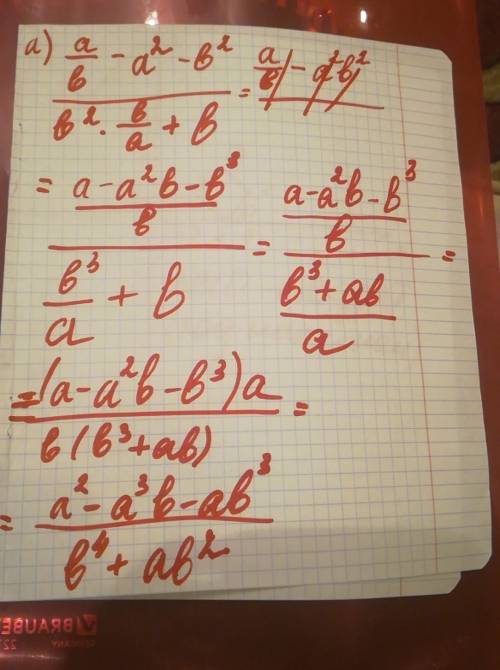 а) a/b - a² - b² / b² · b/a + b = a/b - a²b²
= a-a²b-b³/b / b³/a + b = a-a²b-b³/b / b³+ab/a =
= (a-a²b-b³)a / b(b³+ab) =
= a²-a³b-ab³ / b⁴+ab²
BRAUBE
GERMANY 22